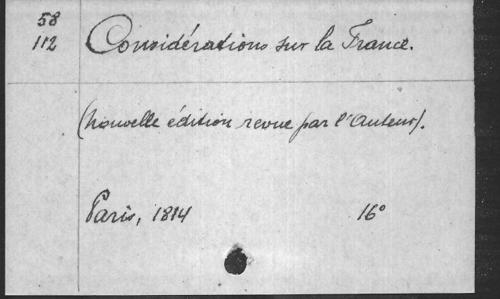 58
112 Considérations sur la France.
(Nouvelle édition revue par l'Auteur).
Paris, 1814 16°